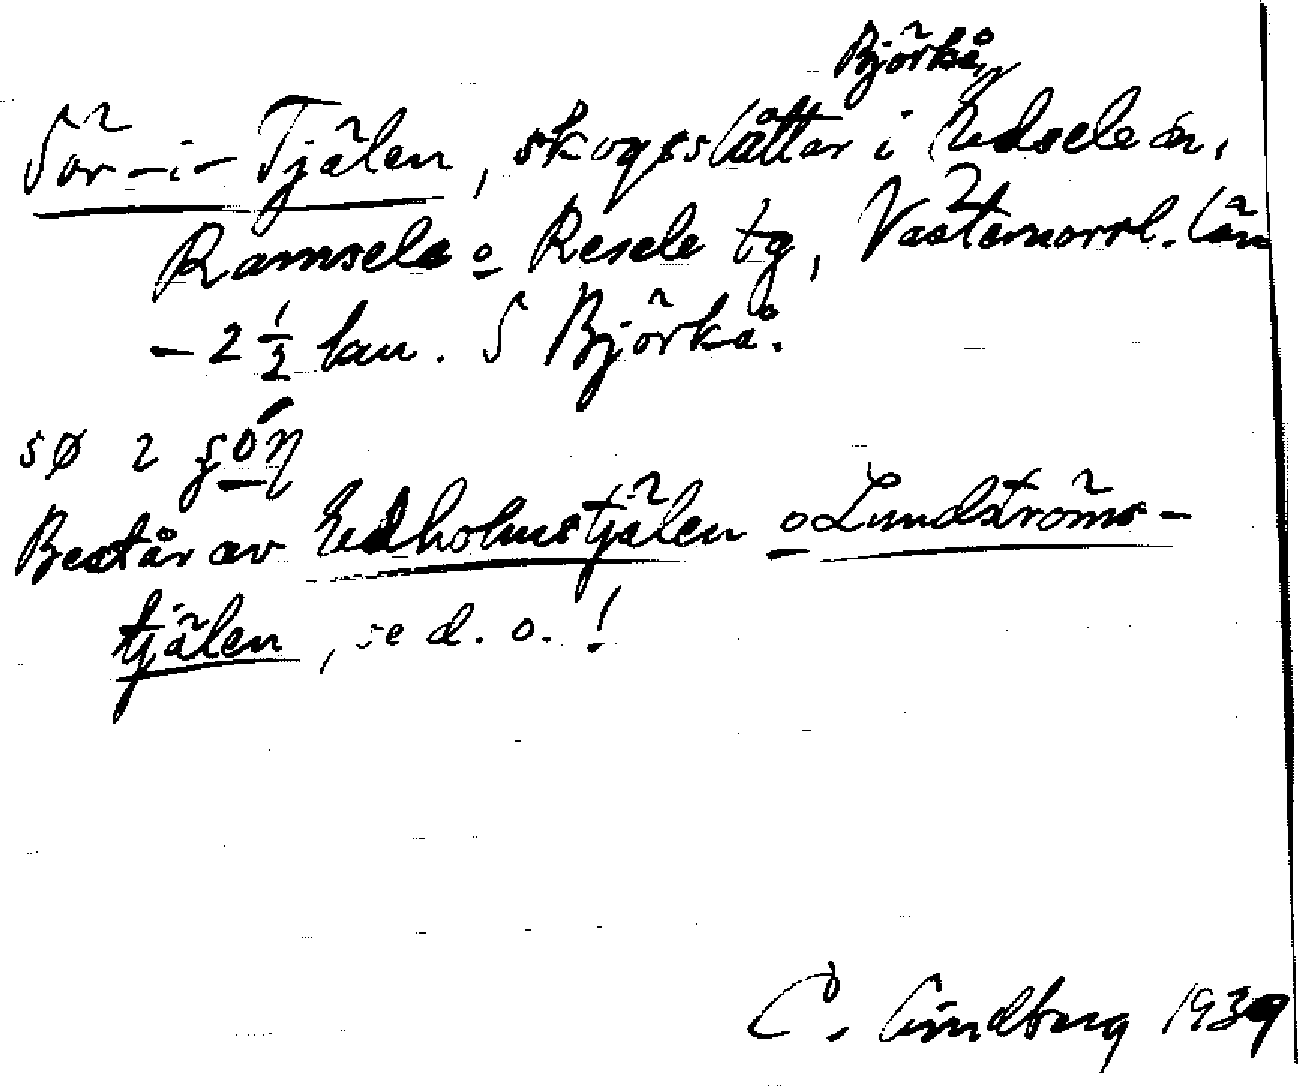 Björkå,
Sör-i-Tjälen, skogsslåttar i Edsele sn,
Ramsele o Resele tg, Västernorrl. län
- 2 ½ km. S Björkå.
Består av Edholmstjälen o Lundströms-
tjälen, se d. o. !
C. Lindberg 1939